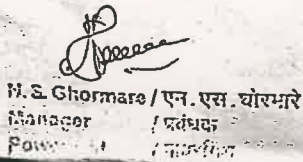 N. S. Ghormare / एन . एस . घोरमारे
Manager / प्रबंधक